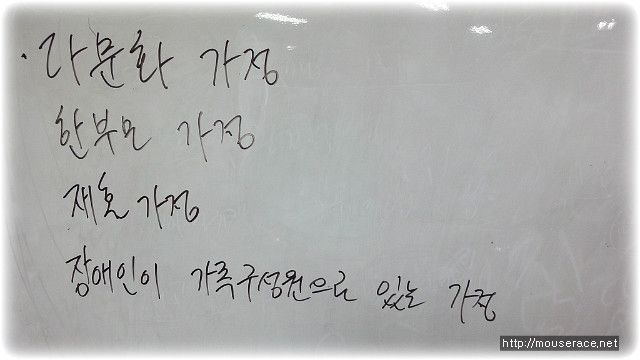 · 다문화 가정
한부모 가정
재혼 가정
장애인이 가족구성원으로 있는 가정
http://mouserace.net